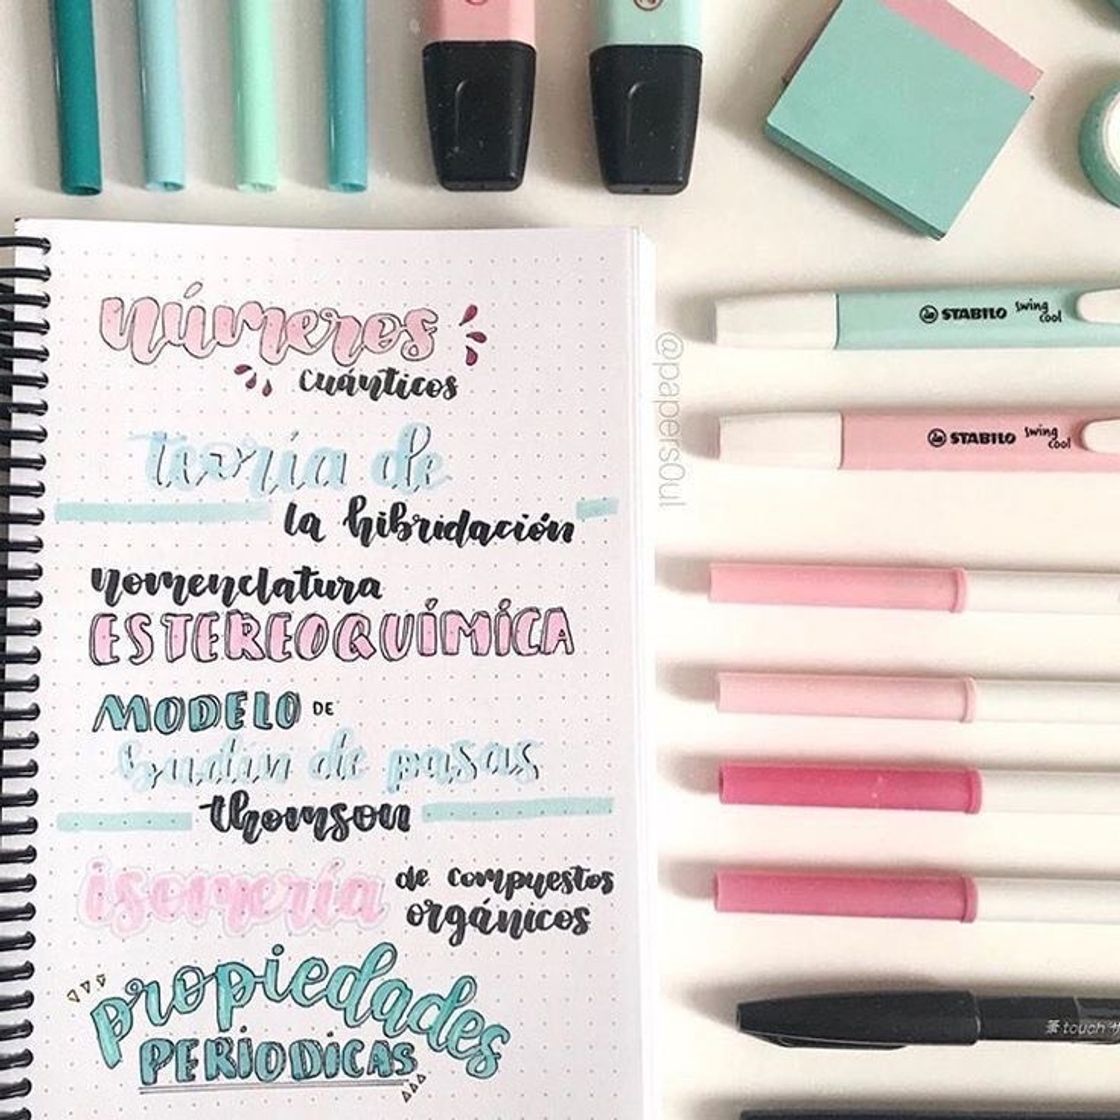 números
cuánticos
teoría de
la hibridación
nomenclatura
ESTEREOQUÍMICA
MODELO DE
budín de pasas
thomson
isomería de compuestos
orgánicos
propiedades
PERIODICAS
@papers0ul
STABILO swing cool
STABILO swing cool
touch